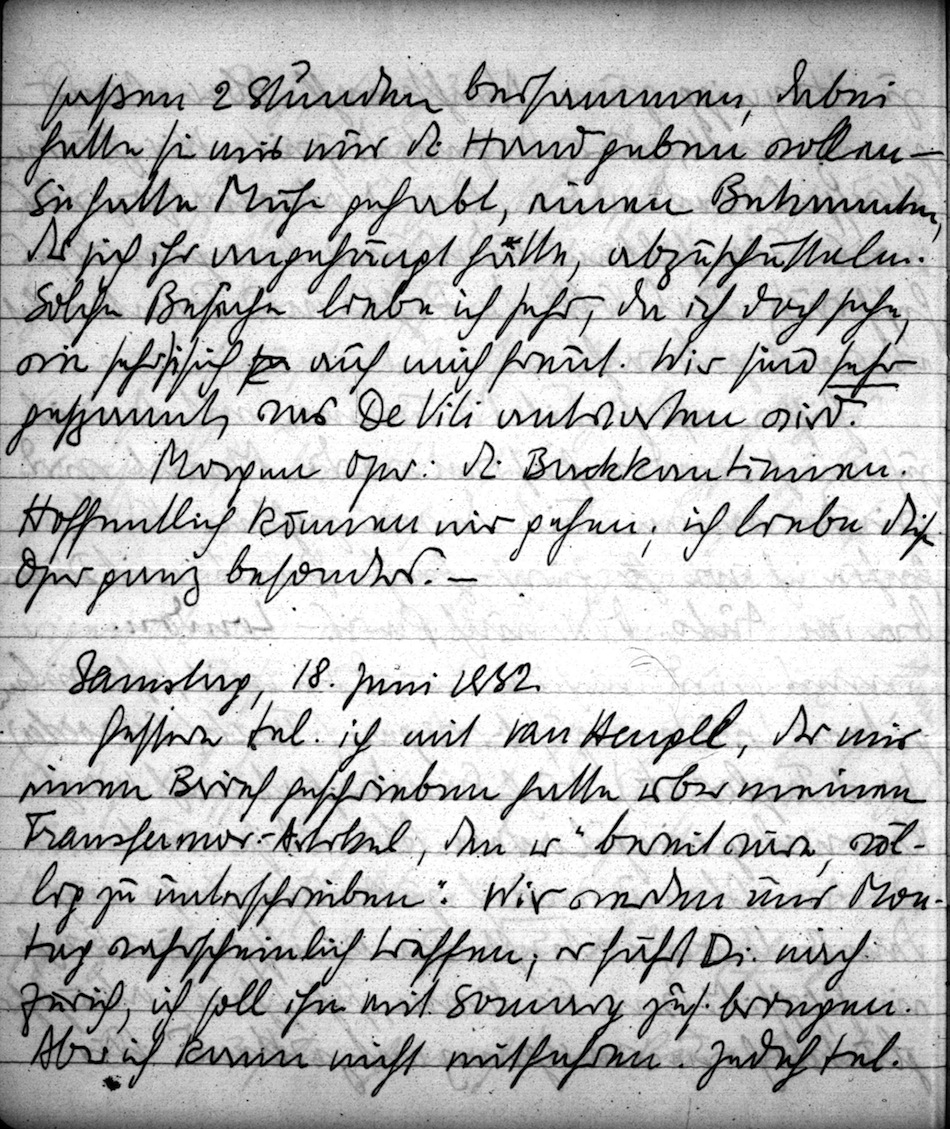 saßen 2 Stunden beisammen, dabei
hatte sie mir nur d. Hand geben wollen —
Sie hatte Mühe gehabt, einen Bekannten,
der sich ihr angehängt hätte, abzuschütteln.
Solche Besuche liebe ich sehr, da ich doch sehe,
wie sehr sie sich auf mich freut. Wir sind sehr
gespannt, was De Viti antworten wird.
Morgen Oper: d.
Hoffentlich können wir gehen; ich liebe diese
Oper ganz besonders. —
Samstag, 18. Juni 1932.
Gestern tel. ich mit van Hengel, der mir
einen Brief geschrieben hatte über meinen
Artikel, den er "bereit wäre, völ-
lig zu unterschreiben". Wir werden uns Mon-
tag wahrscheinlich treffen; er fährt Di. nach
Zürich, ich soll ihn mit Somary zus. bringen.
Aber ich kann nicht mitfahren. Jedoch tel.